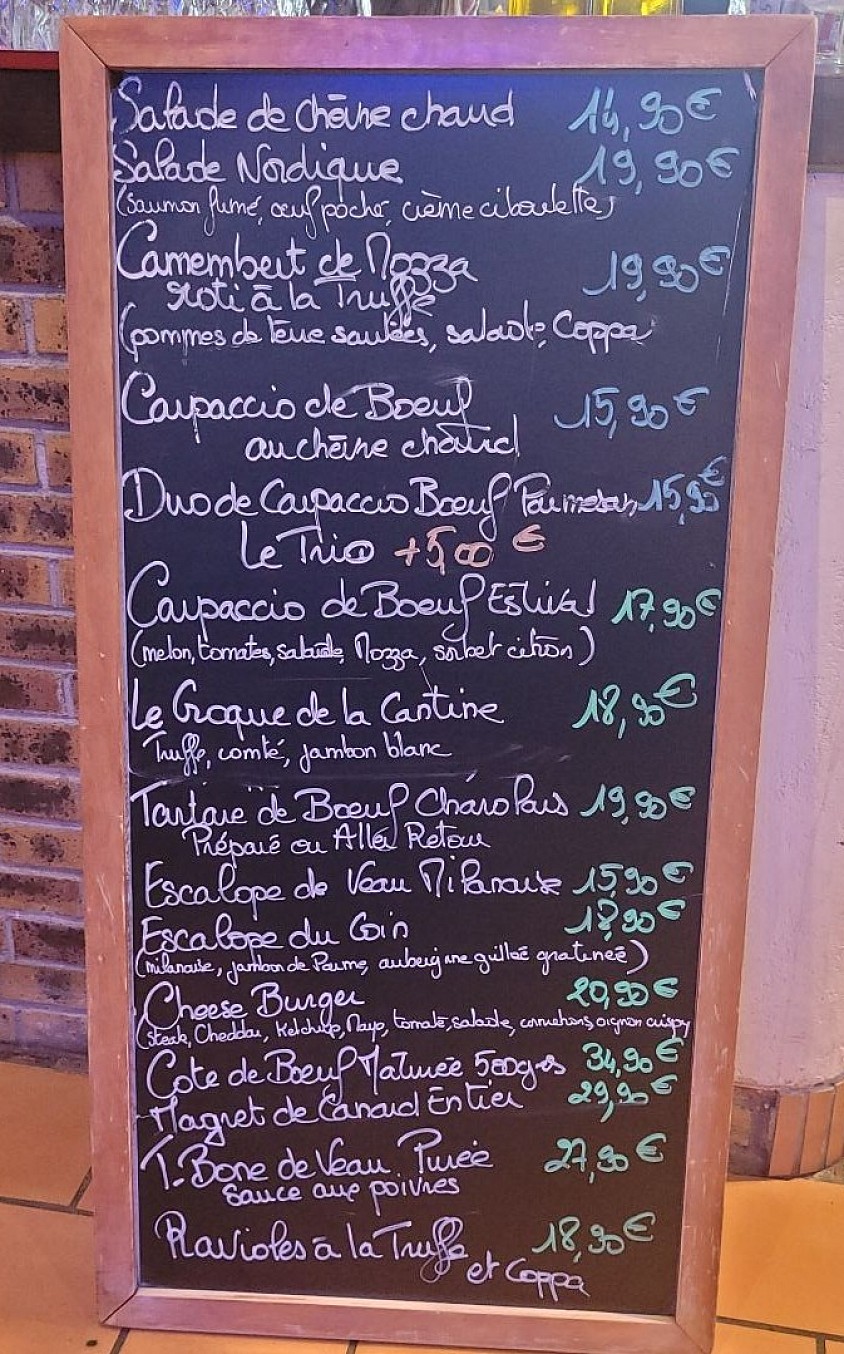 Salade de Chèvre chaud 14,90€
Salade Nordique 19,90€
(Saumon fumé, œuf poché, crème ciboulette)
Camembert de Mozza 19,90€
rôti à la Truffe
(pommes de terre sautées, salade, Coppa
Carpaccio de Boeuf 15,90€
au chèvre chaud
Duo de Carpaccio Boeuf Parmesan 15,90€
Le Trio +5,00 €
Carpaccio de Boeuf Estival 17,90€
(melon, tomates, salade, Mozza, sorbet citron)
Le Croque de la Cantine 18,90€
Truffe, comté, jambon blanc
Tartare de Boeuf Charolais 19,90€
Préparé ou Aller Retour
Escalope de Veau Milanaise 15,90€
Escalope du Coin 18,90€
(milanaise, jambon de Parme, aubergine grillée gratinée)
Cheese Burger 20,90€
(Steak, Cheddar, Ketchup, Mayo, tomate, salade, cornichons, oignon crispy
Cote de Boeuf Maturée 500grs 34,90€
Magret de Canard Entier 29,90€
T-Bone de Veau Purée 27,90€
Sauce aux poivres
Ravioles à la Truffe 18,90€
et Coppa